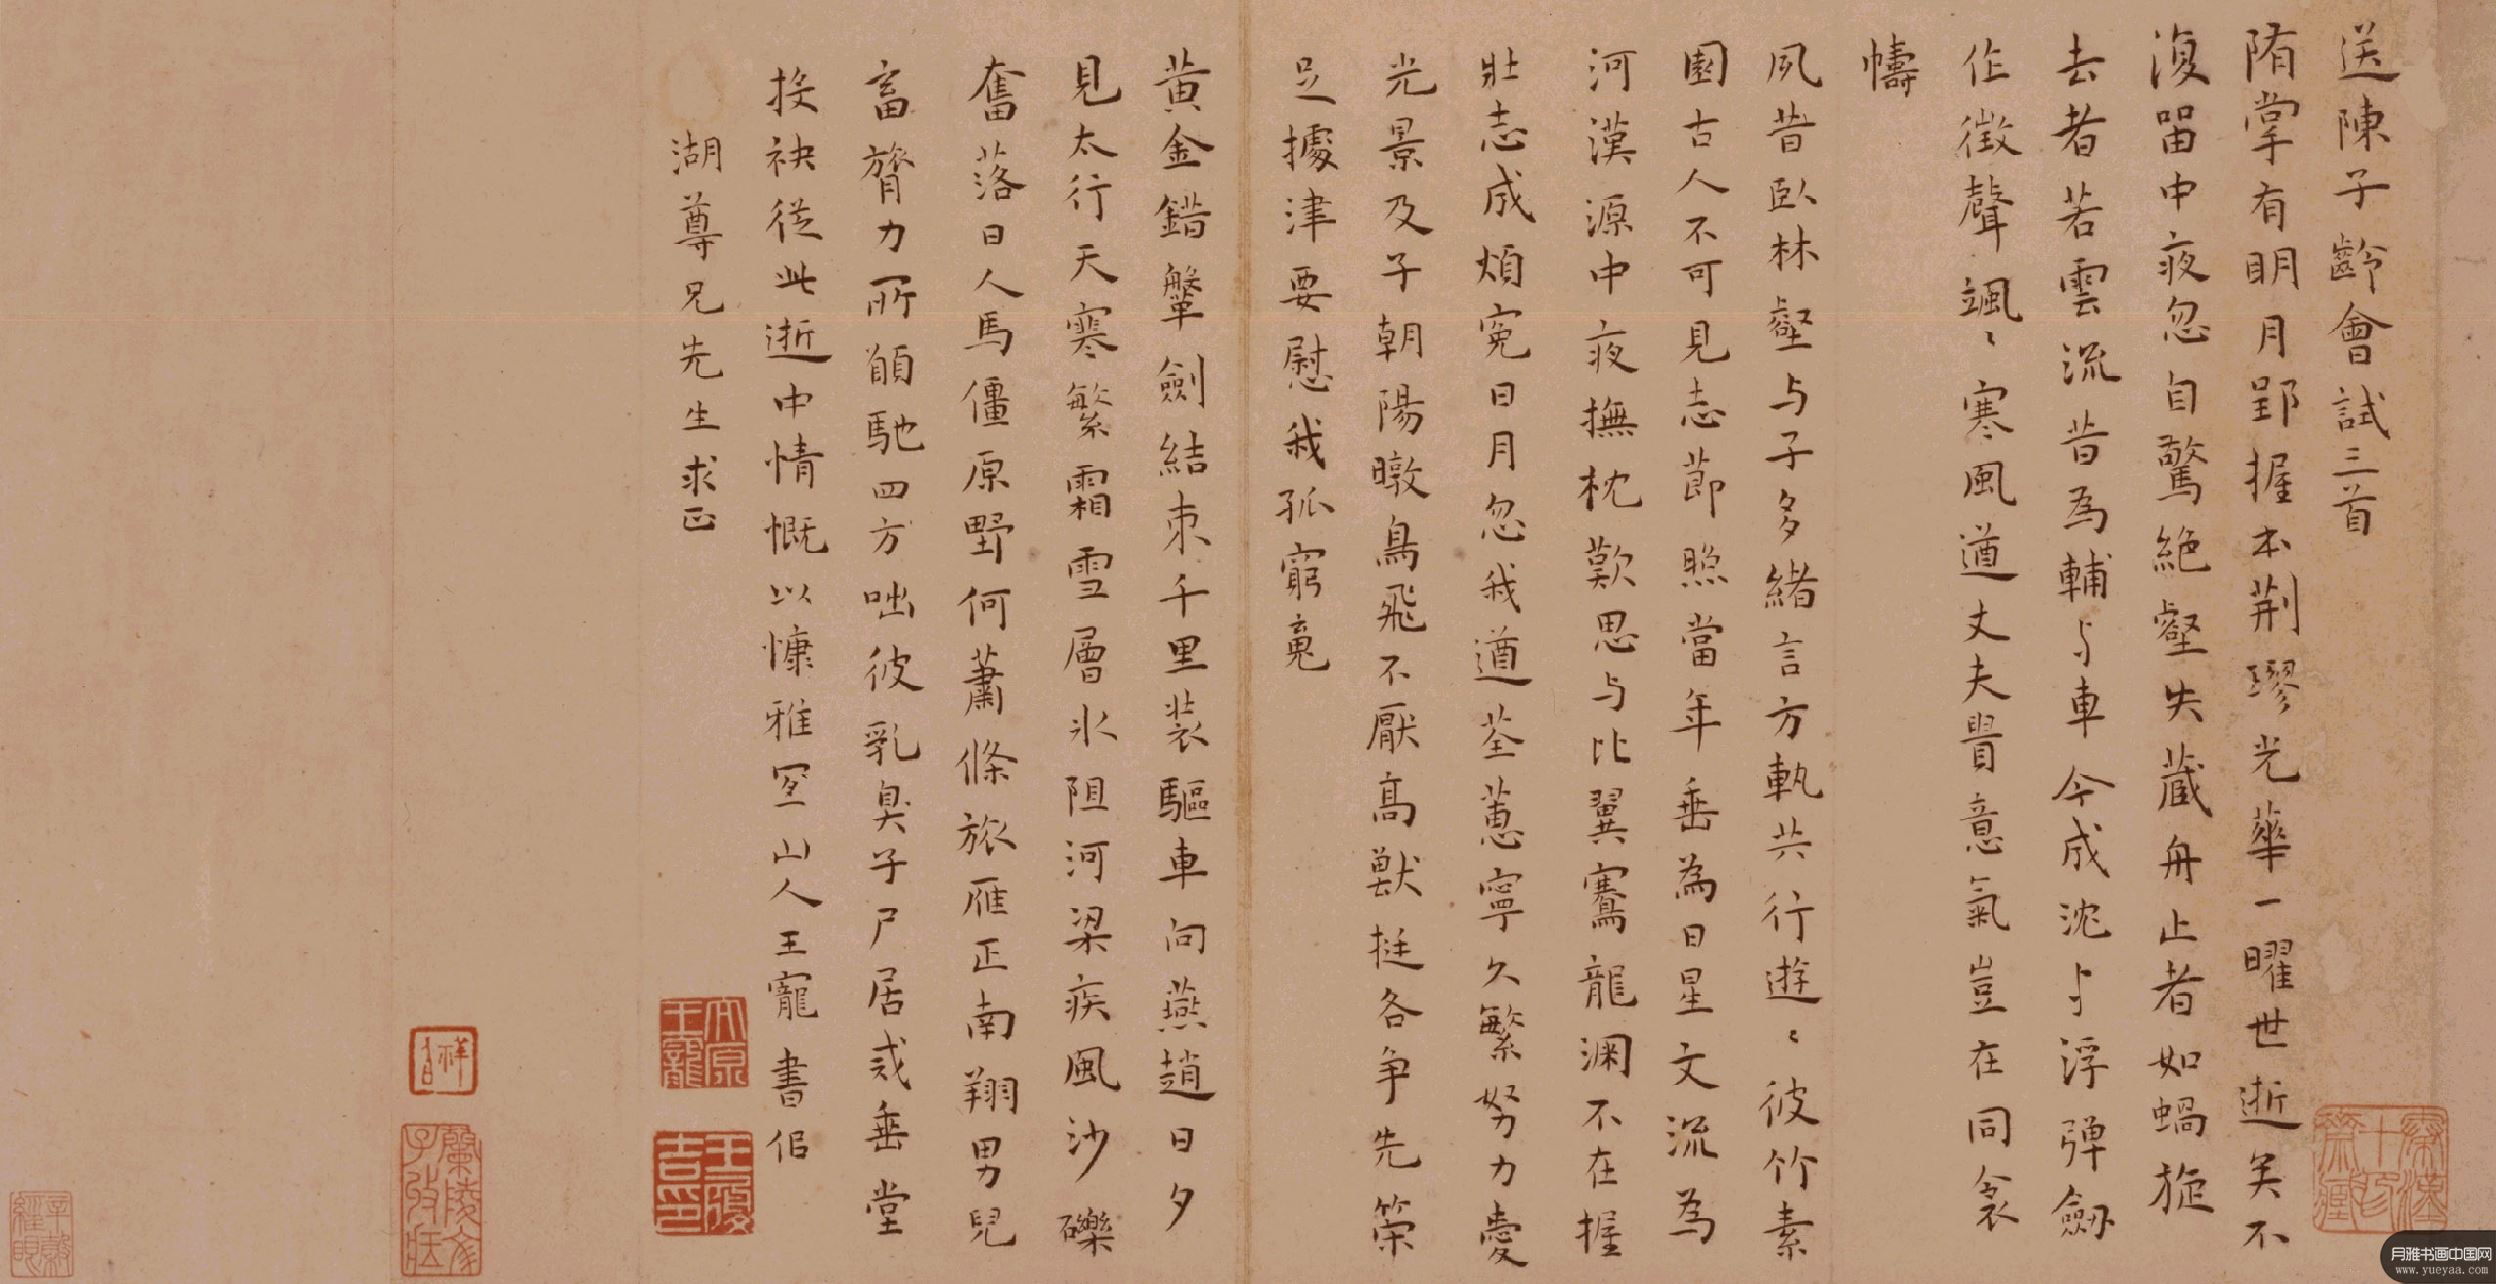 送陳子齡會試三首
隋掌有明月郢握本荆璆光華一曜世逝矣不
復畱中夜忽自驚絶壑失藏舟止者如蝸旋
去者若雲流昔為輔与車今成沈与浮彈劒
作徵聲颯〻寒風遒丈夫貴意氣豈在同衾
幬
夙昔臥林壑与子多緒言方執共行遊〻彼竹素
園古人不可見志節照當年垂為日星文流為
河漢源中夜撫枕歎思与比翼騫龍淵不在握
壯志成煩寃日月忽我遒荃蕙寧久繁努力愛
光景及子朝陽暾鳥飛不厭高獸挺各争先榮
足據津要慰我孤窮䰟
黄金錯鞶劍結束千里装驅車向燕趙日夕
見太行天寒繁霜雪層氷阻河梁疾風沙礫
奮落日人馬僵原野何蕭條旅雁正南翔男兒
富膂力所願馳四方咄彼乳臭子尸居戒垂堂
投袂從此逝中情慨以慷雅宜山人王寵書似
湖尊兄先生求正
太原王寵
王履吉印
月雅书画中国网
www.yueyaa.com